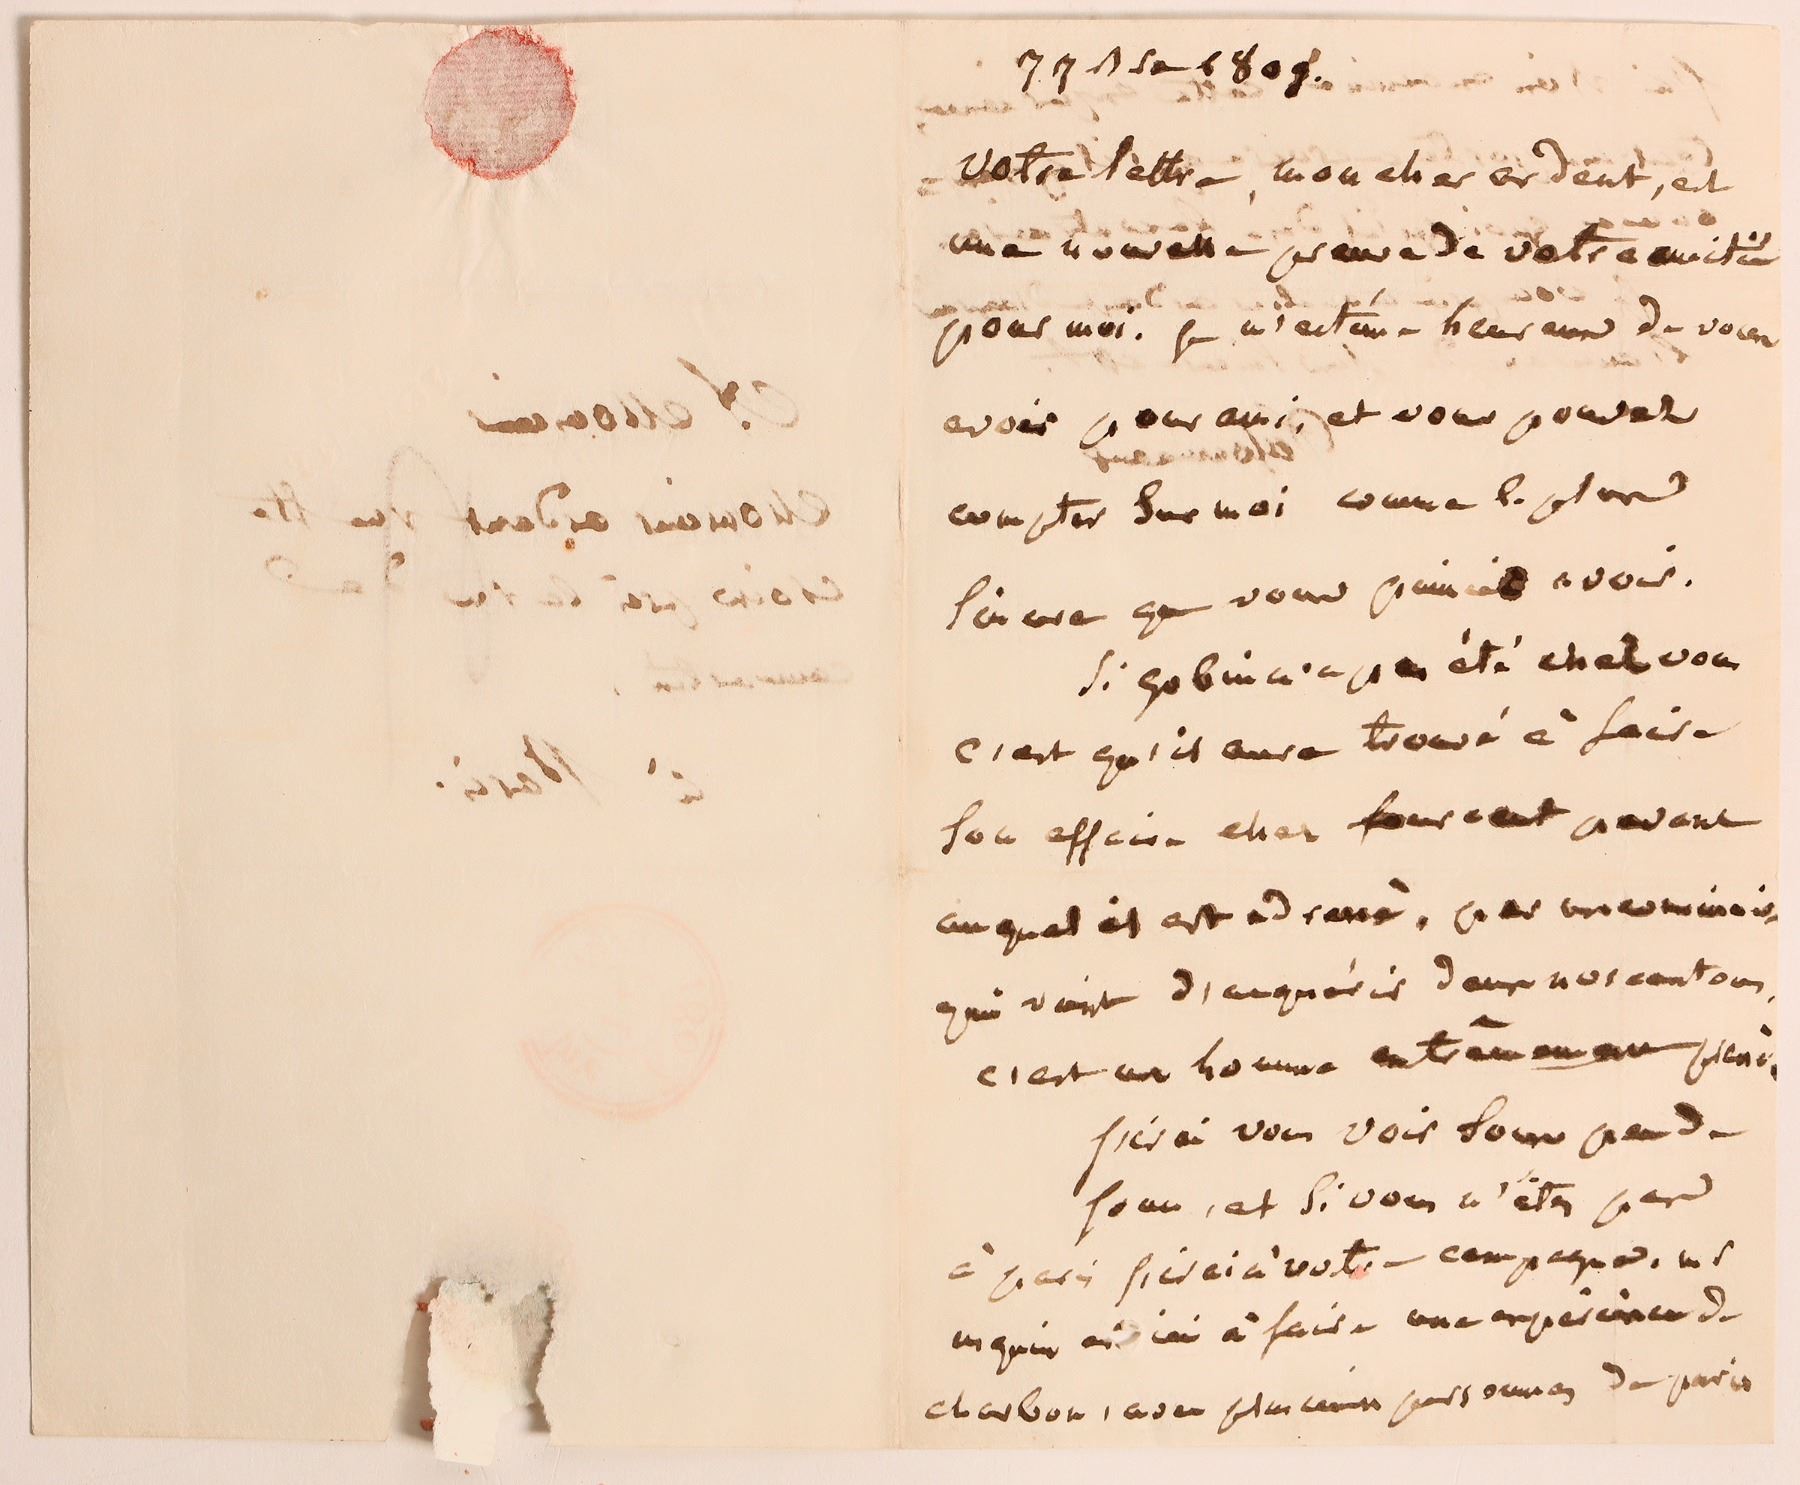 7 7bre 1809.
Votre lettre, mon cher ardent, est
une nouvelle preuve de votre amitié
pour moi. je m'estime heureux de vous
avoir pour ami, et vous pouvez
compter sur moi comme le plus
sincere que vous puissiez avoir.
Si gobin n'a pas été chez vous
c'est qu'il aura trouvé à faire
son affaire chez
auquel il est adressé, par
qui vient d'acquérir dans nos cantons,
c'est un homme extrêmement
j'irai vous voir sous peu de
jours, et si vous n'êtes pas
à paris j'irai à votre campagne. mr
ici à faire une expérience de
charbon, avec plusieurs personnes de paris
A Monsieur
Monsieur ardent rue Ste
Croix de la
à Paris.